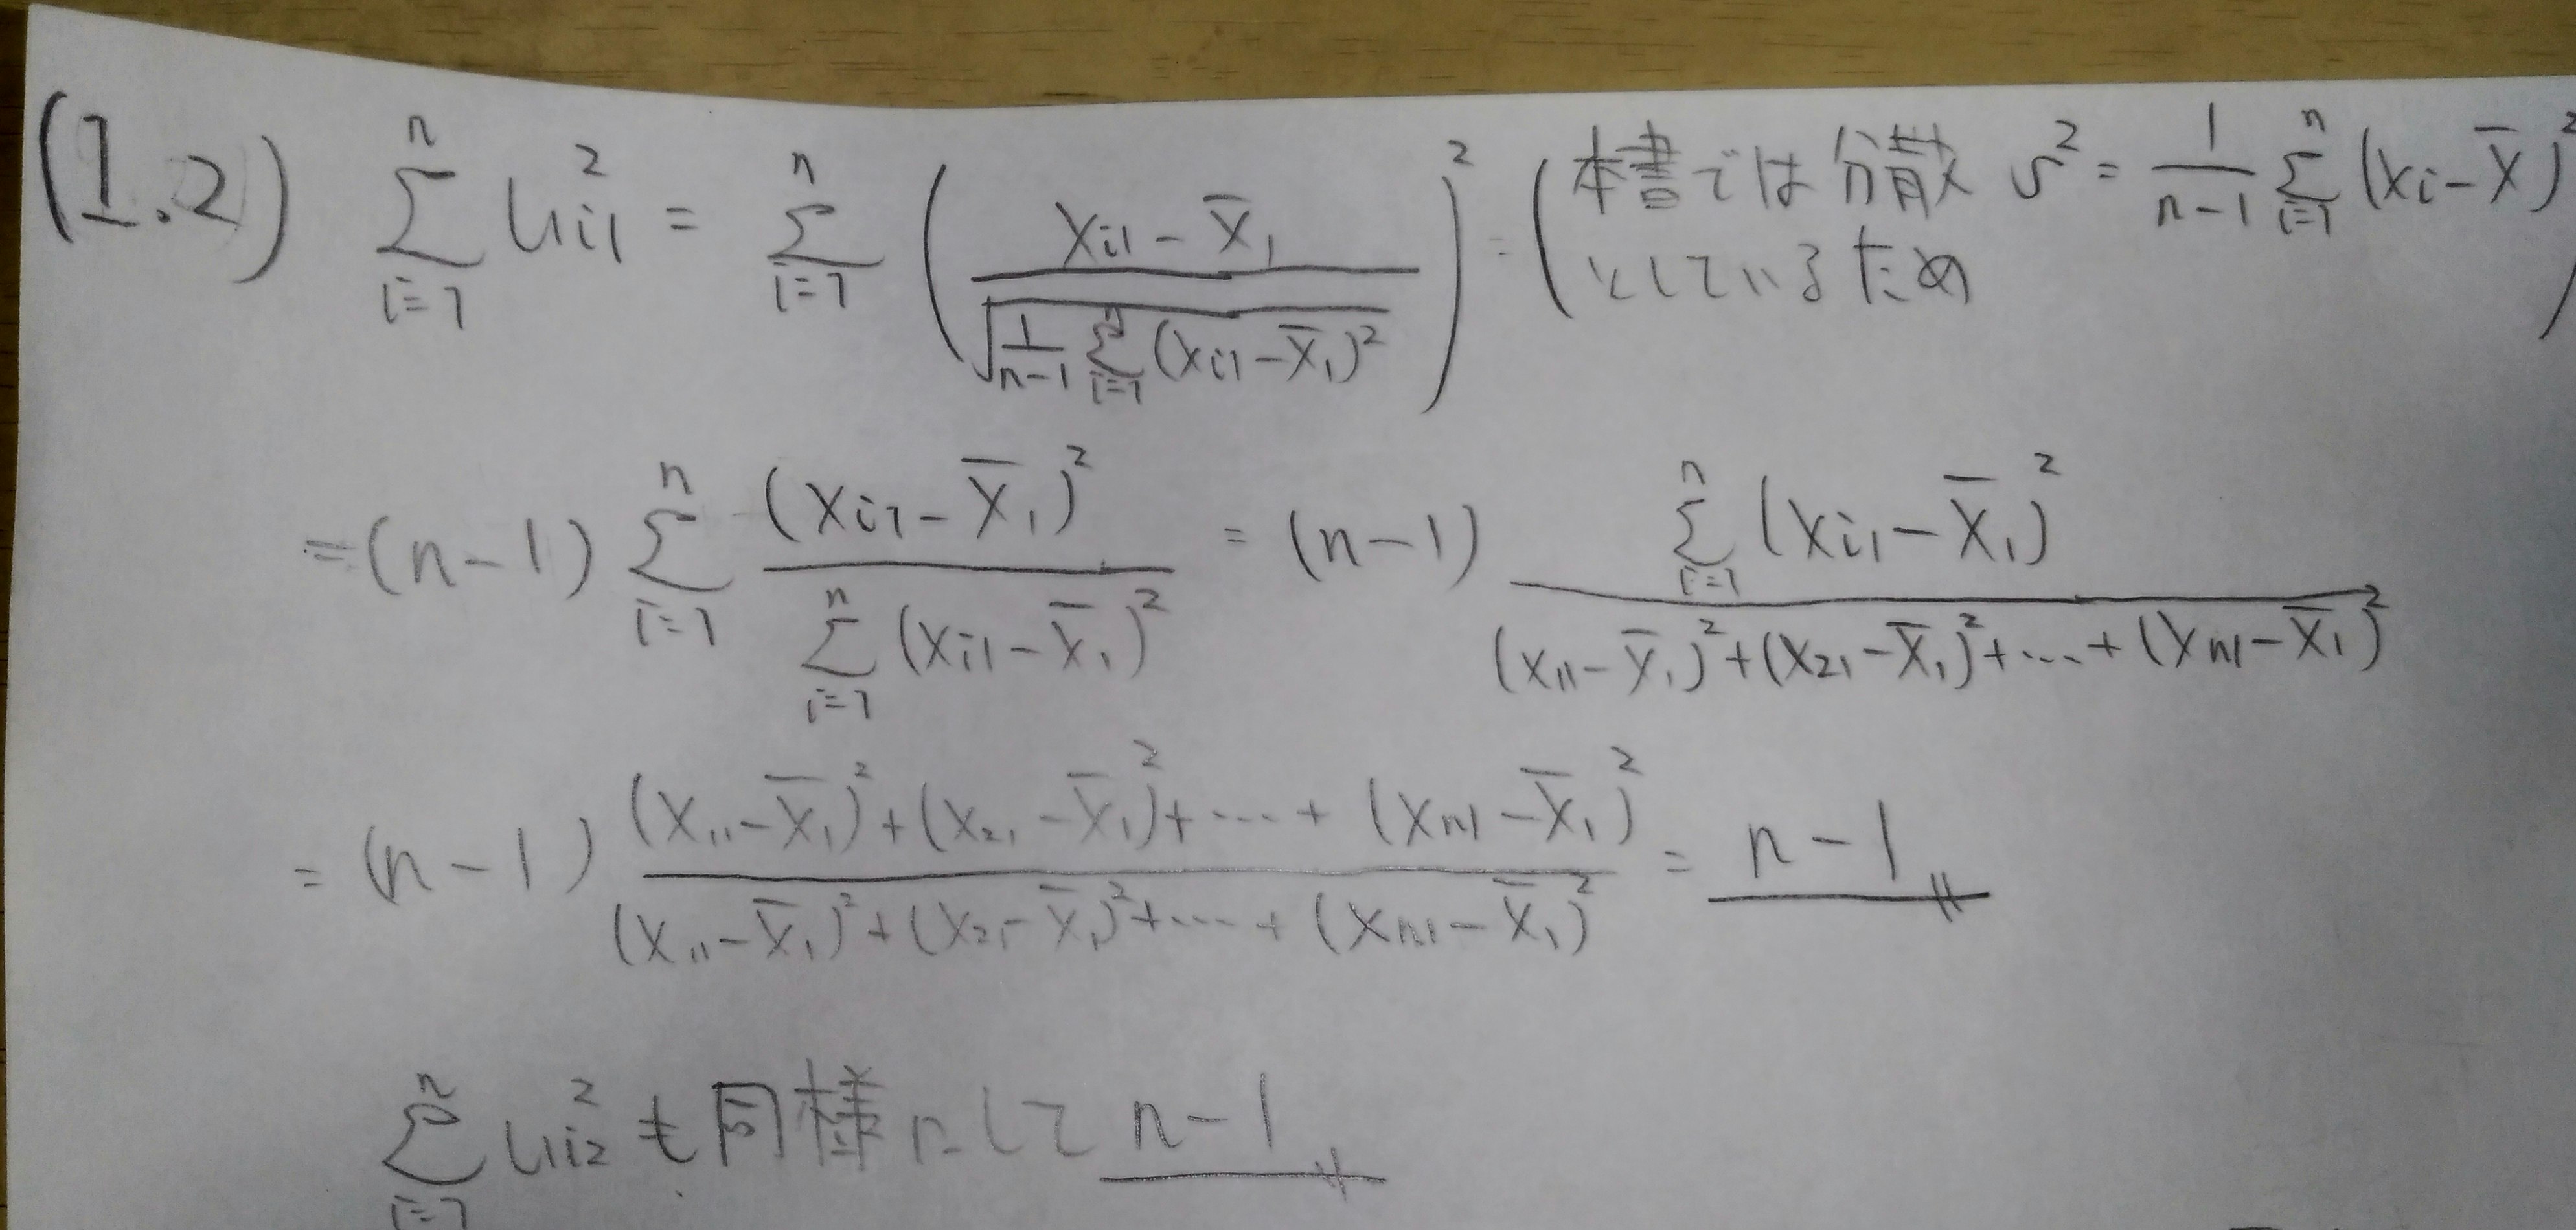 (1.2) \sum_{i=1}^{n} u_{i1}^2 = \sum_{i=1}^{n} \left( \frac{x_{i1} - \overline{x}_1}{\sqrt{\frac{1}{n-1} \sum_{i=1}^{n} (x_{i1} - \overline{x}_1)^2}} \right)^2 = ( 本書では分散 s^2 = \frac{1}{n-1} \sum_{i=1}^{n} (x_i - \overline{x})^2
としているため )
= (n-1) \sum_{i=1}^{n} \frac{(x_{i1} - \overline{x}_1)^2}{\sum_{i=1}^{n} (x_{i1} - \overline{x}_1)^2} = (n-1) \frac{\sum_{i=1}^{n} (x_{i1} - \overline{x}_1)^2}{(x_{11} - \overline{x}_1)^2 + (x_{21} - \overline{x}_1)^2 + \cdots + (x_{n1} - \overline{x}_1)^2}
= (n-1) \frac{(x_{11} - \overline{x}_1)^2 + (x_{21} - \overline{x}_1)^2 + \cdots + (x_{n1} - \overline{x}_1)^2}{(x_{11} - \overline{x}_1)^2 + (x_{21} - \overline{x}_1)^2 + \cdots + (x_{n1} - \overline{x}_1)^2} = n-1
\sum_{i=1}^{n} u_{i2}^2 も同様にして n-1